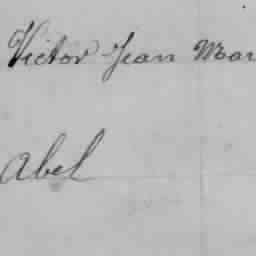 Victor Jean Mar
Abel